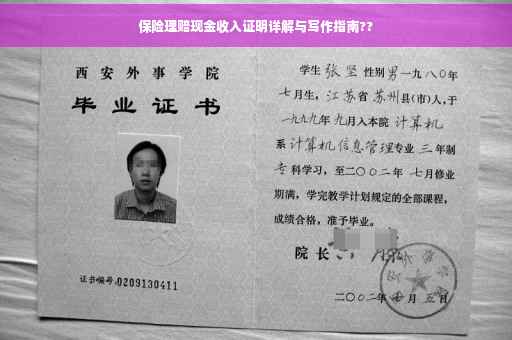 保险理赔现金收入证明详解与写作指南??
西安外事学院
毕业证书
证书编号:0209130411
学生 张坚 性别 男 一九八〇年
七月生, 江苏省 苏州县(市)人,于
一九九九年 九月入本院 计算机
系 计算机信息管理专业 三 年制
专 科学习, 至二〇〇二年 七月修业
期满, 学完教学计划规定的全部课程,
成绩合格, 准予毕业。
院 长
二〇〇二年 月 五日